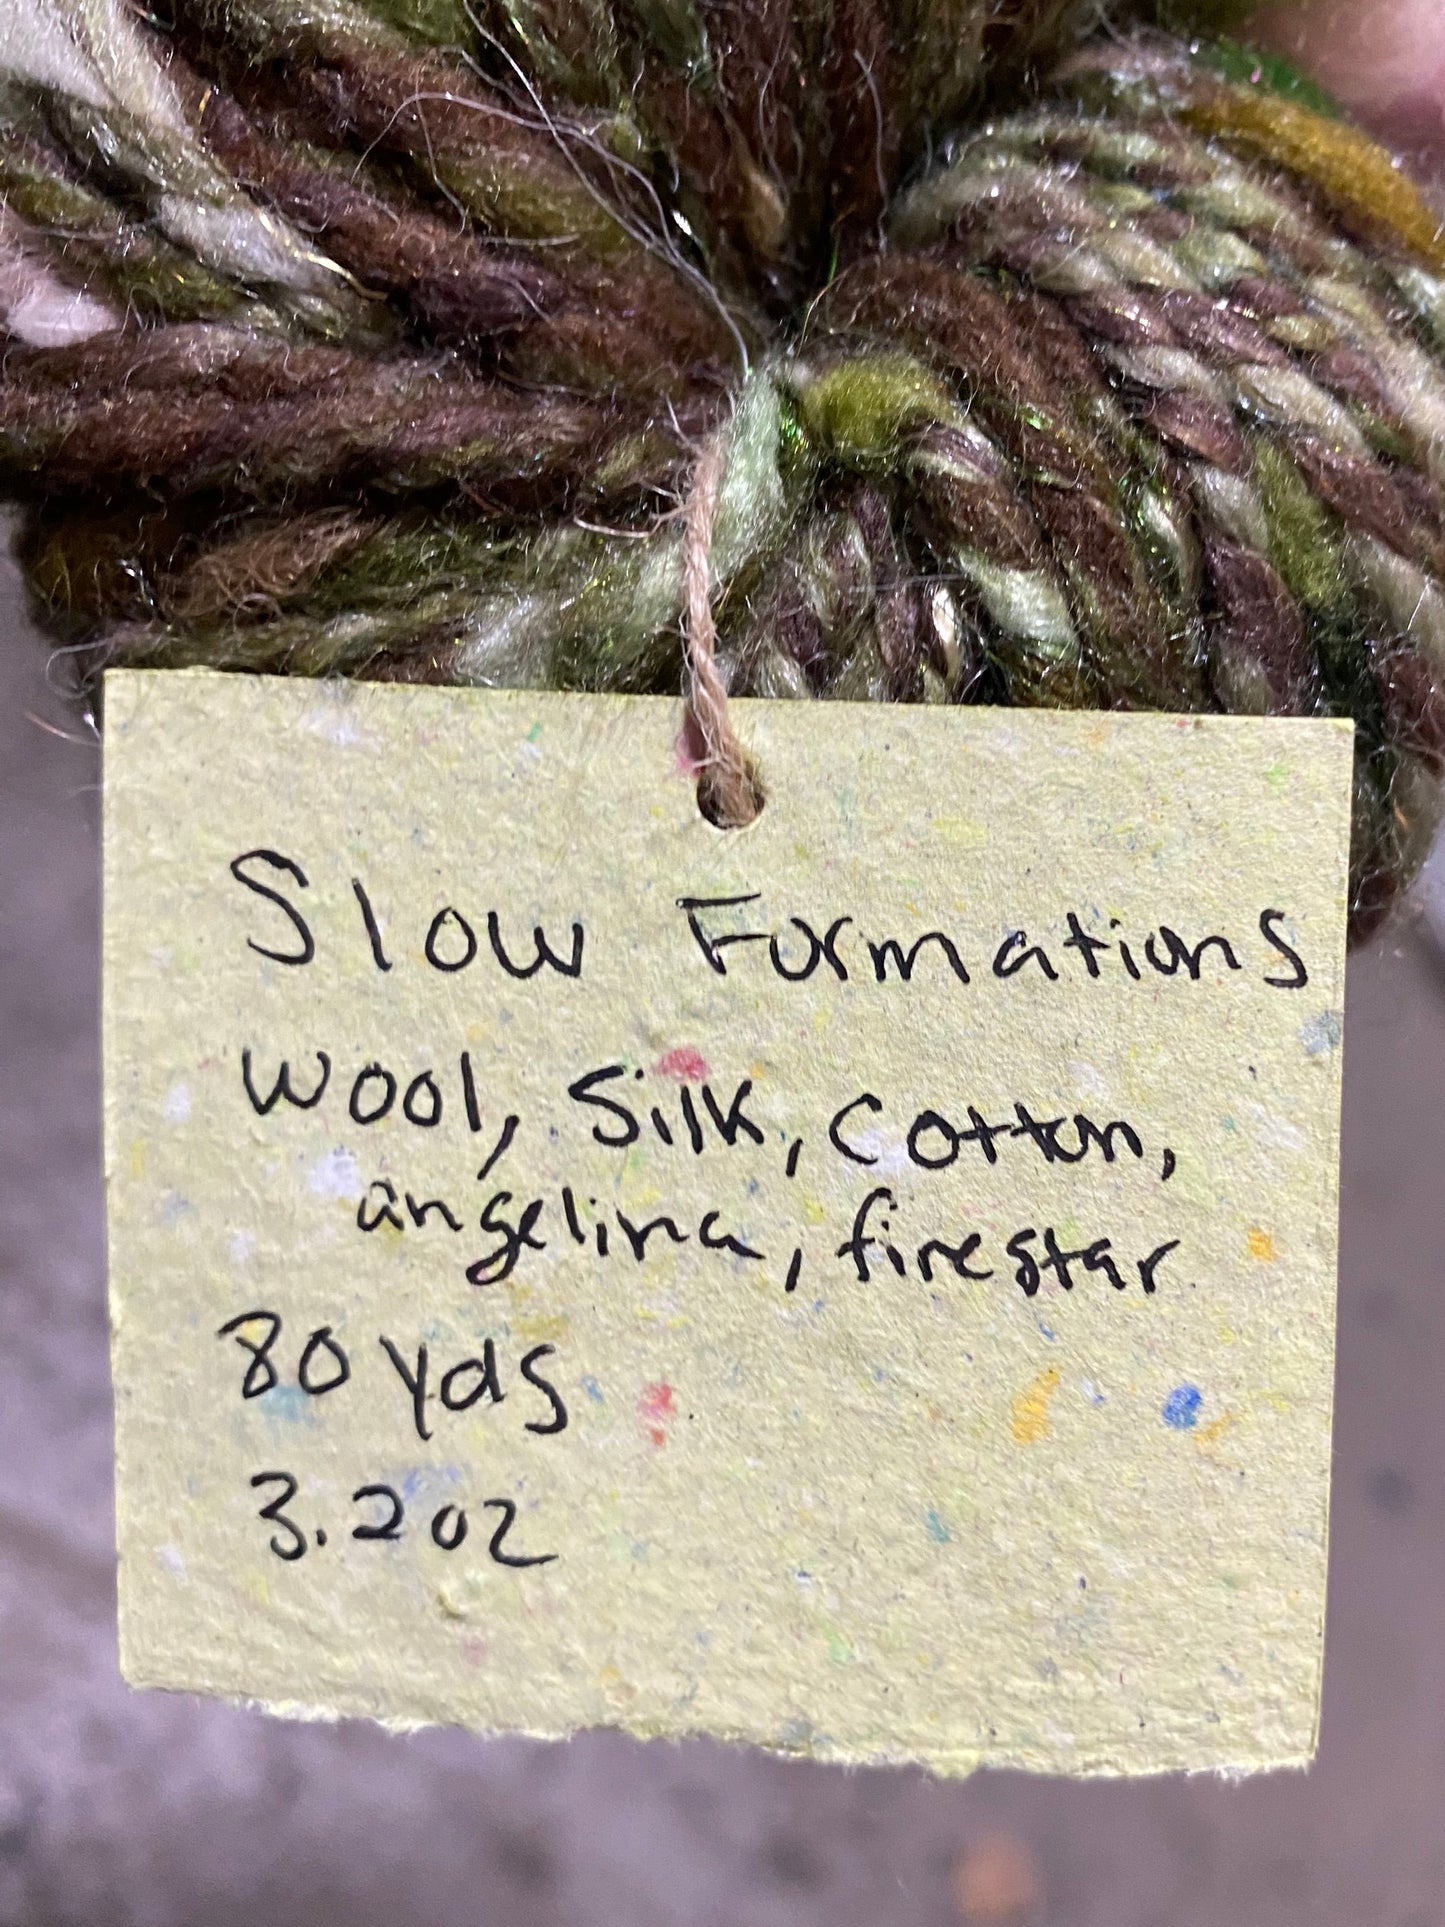 Slow Formations
Wool, Silk, Cotton,
angelina, firestar
80 yds
3.2 oz